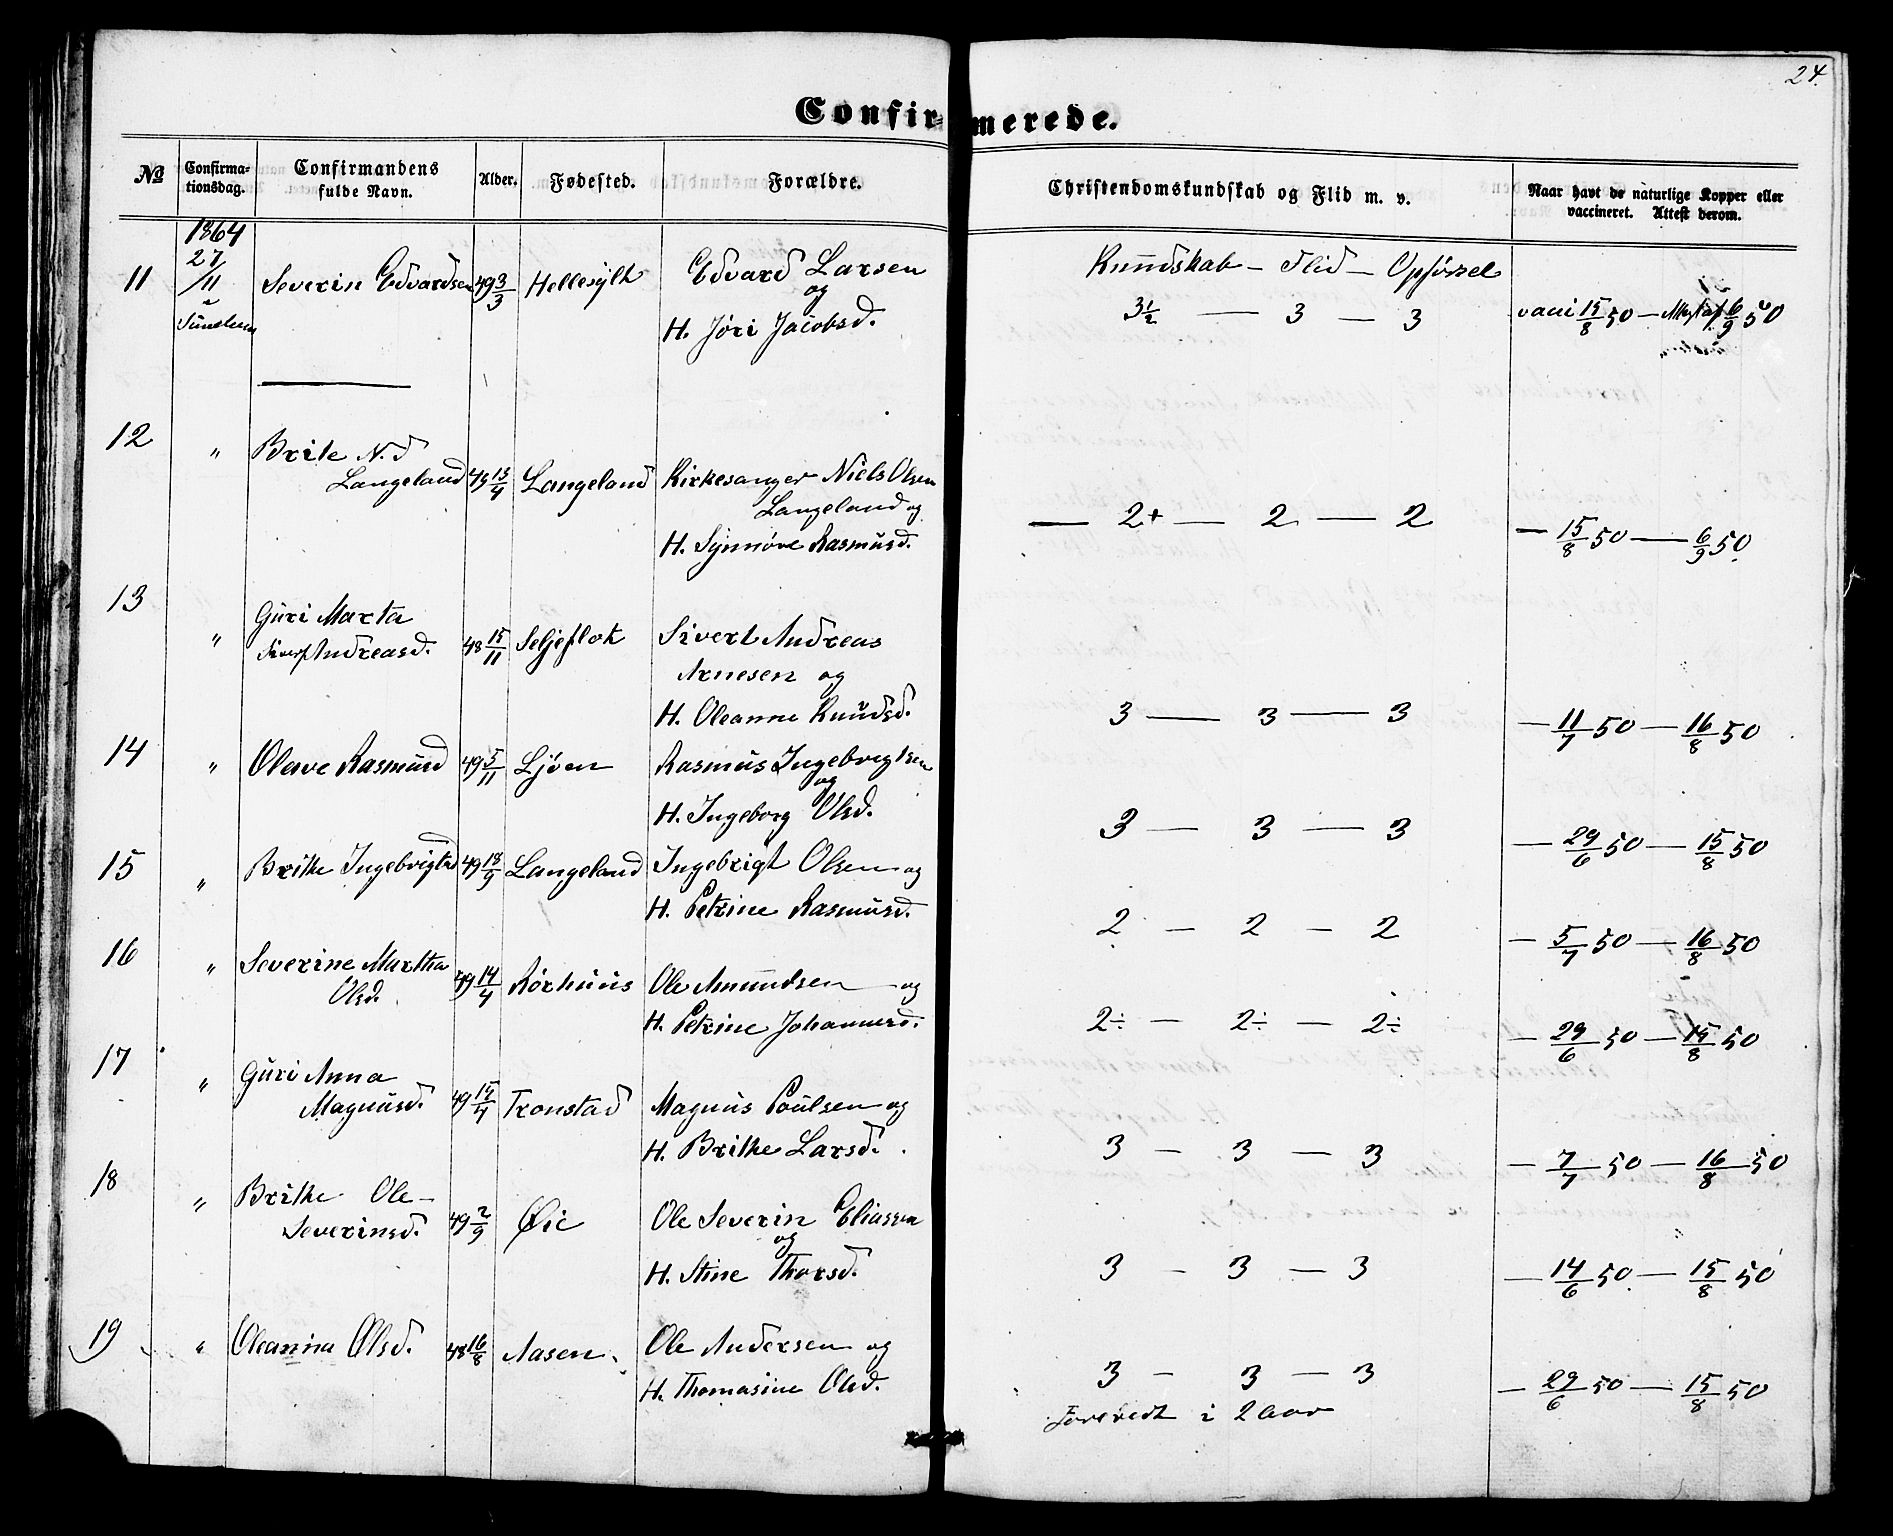 24.
Confirmerede.
No
Confirmationsdag.
Confirmandens fulde Navn.
Alder.
Fødested.
Forældre.
Christendomskundskab og Flid m. v.
Naar havt de naturlige Kopper eller vaccineret. Attest derom.
1864
27/11
Kundskab - Flid - Opførsel
11 Severin Edvardsen 49 3/3 Hellesylt Edvard Larsen
og
H. Jøri Jacobsd.
3½ — 3 — 3 vacci 15/8 50 — 6/9 50
12 " Brite N.d
Langeland 49 13/4 Langeland Kirkesanger Niels Olsen
Langeland og
H. Synnøve Rasmusd.
— 2+ — 2 — 2 — 15/8 50 — 6/9 50.
13 " Guri Marta
Sivert Andreasd. 48 15/11 Seljeflot Sivert Andreas
Arnesen og
H. Oleanne Knudsd.
3 — 3 — 3 — 11/7 50 — 16/8 50
14 " Olave Rasmusd 49 5/11 Ljøen Rasmus Ingebrigtsen
og
H. Ingeborg Olsd.
3 — 3 — 3 — 29/6 50 — 15/8 50
15 " Brithe Ingebrigtsd 49 18/9 Langeland Ingebrigt Olsen og
H. Petrine Rasmusd.
2 — 2 — 2 — 5/7 50 — 16/8 50
16 " Severine Martha
Olsd. 49 14/4 Rørhuus Ole Amundsen og
H. Petrine Johannesd.
2÷ — 2÷ — 2÷ — 29/6 50 — 15/8 50
17 " Guri Anna
Magnusd. 49 15/4 Tronstad Magnus Poulsen og
H. Brithe Larsd.
3 — 3 — 3 — 7/7 50 — 16/8 50
18 " Brithe Ole-
Severinsd. 49 2/9 Øie Ole Severin Eliassen
og
H. Stine Thorsd.
3 — 3 — 3 — 14/6 50 — 15/8 50
19 " Oleanna Olsd. 48 16/8 Aasen Ole Andersen og
H. Thomasine Olsd.
3 — 3 — 3 — 29/6 50 — 15/8 50
i 2 Aar